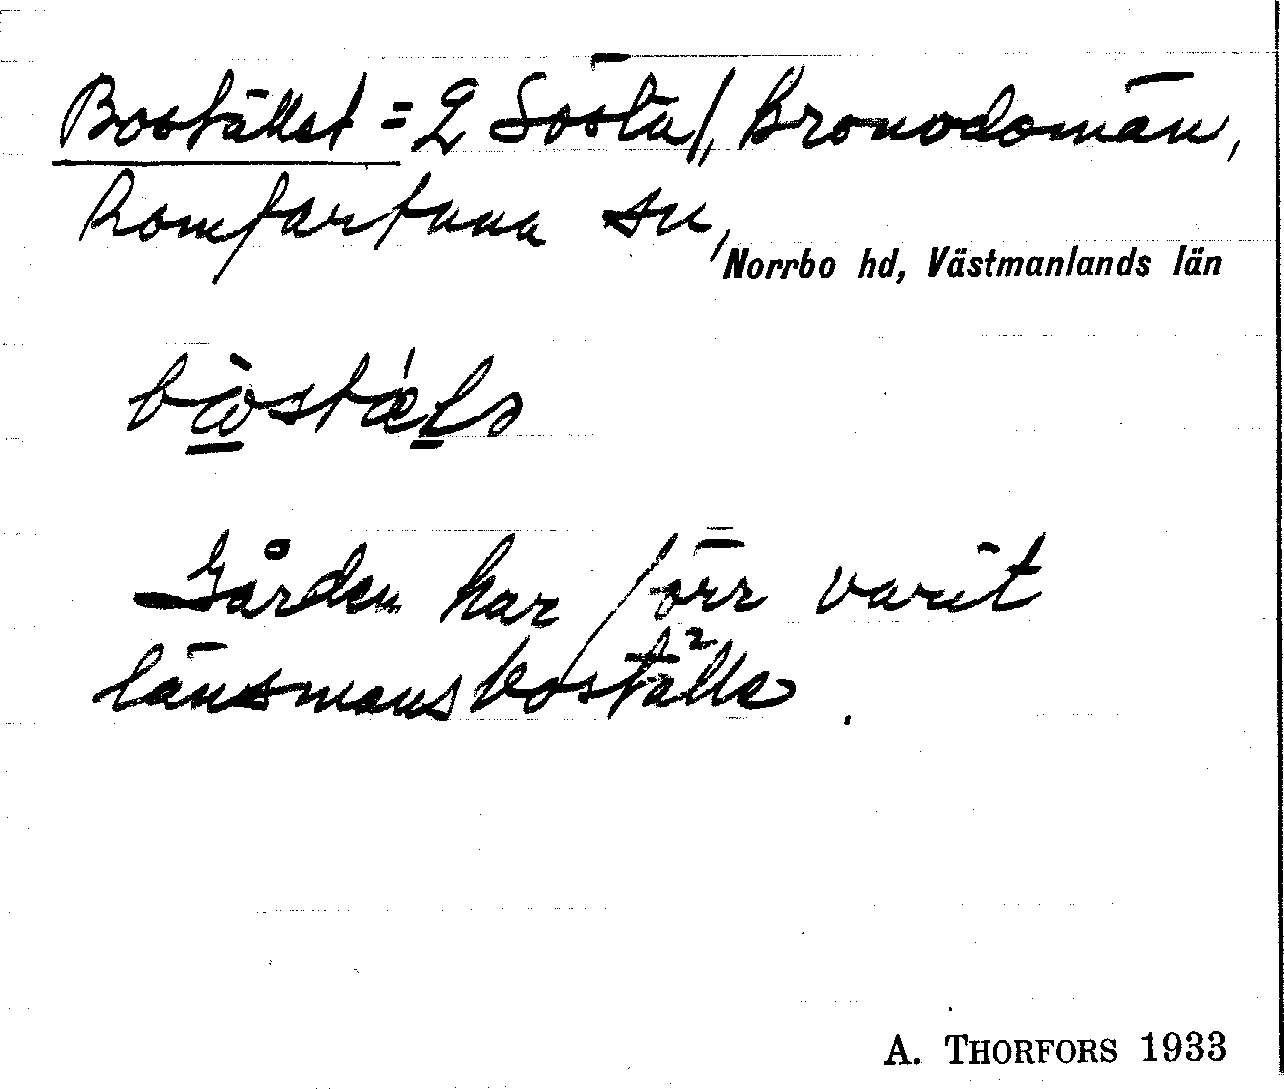 Bostället = 2 Sösta, Kronodomän,
Romfartuna sn,
Norrbo hd, Västmanlands län
bωstæłə
Gården har förr varit
länsmansboställe.
A. THORFORS 1933